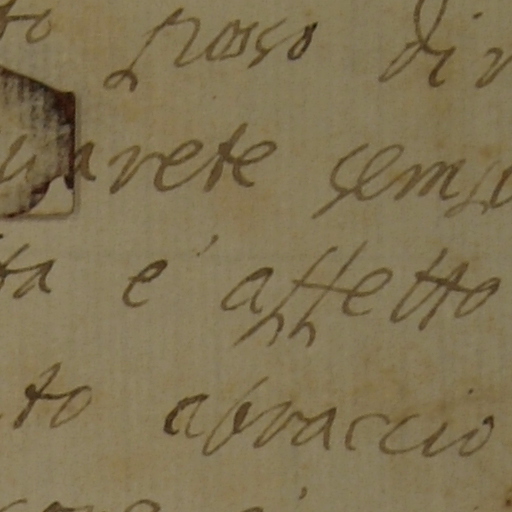 to grosso di
arete sem
ta e' affetto
to abraccio